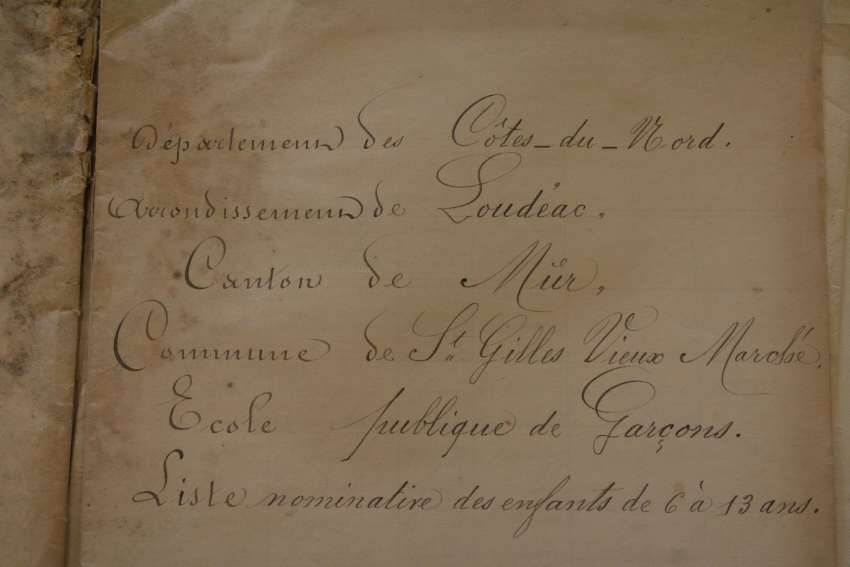 Département des Côtes-du-Nord.
Arrondissement de Loudéac.
Canton de Mûr,
Commune de St. Gilles Vieux Marché.
Ecole publique de Garçons.
Liste nominative des enfants de 6 à 13 ans.